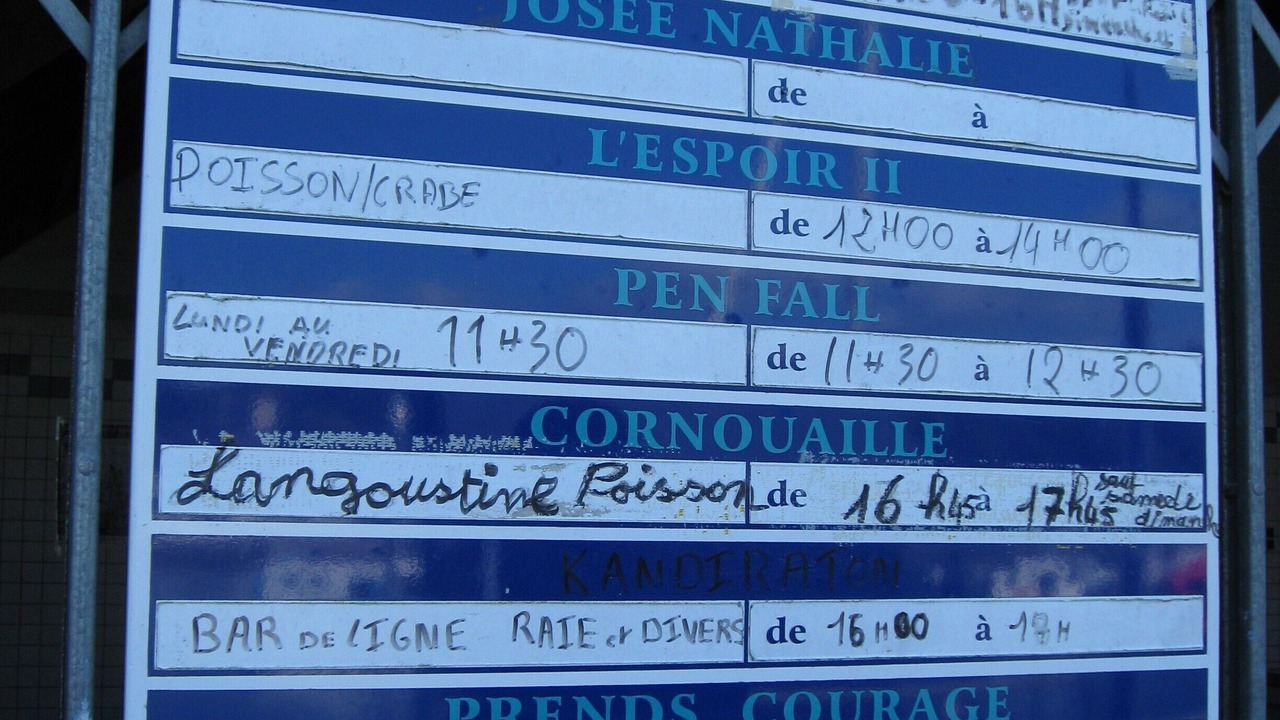 16H
JOSÉE NATHALIE
de à
L'ESPOIR II
POISSON/CRABE de 12H00 à 14H00
PEN FALL
LUNDI AU
VENDREDI 11H30 de 11H30 à 12H30
CORNOUAILLE
Langoustine Poisson de 16h45 à 17h45 sauf
samedi
dimanche
KANDIRATON
BAR DE LIGNE RAIE et DIVERS de 16H00 à
PRENDS COURAGE